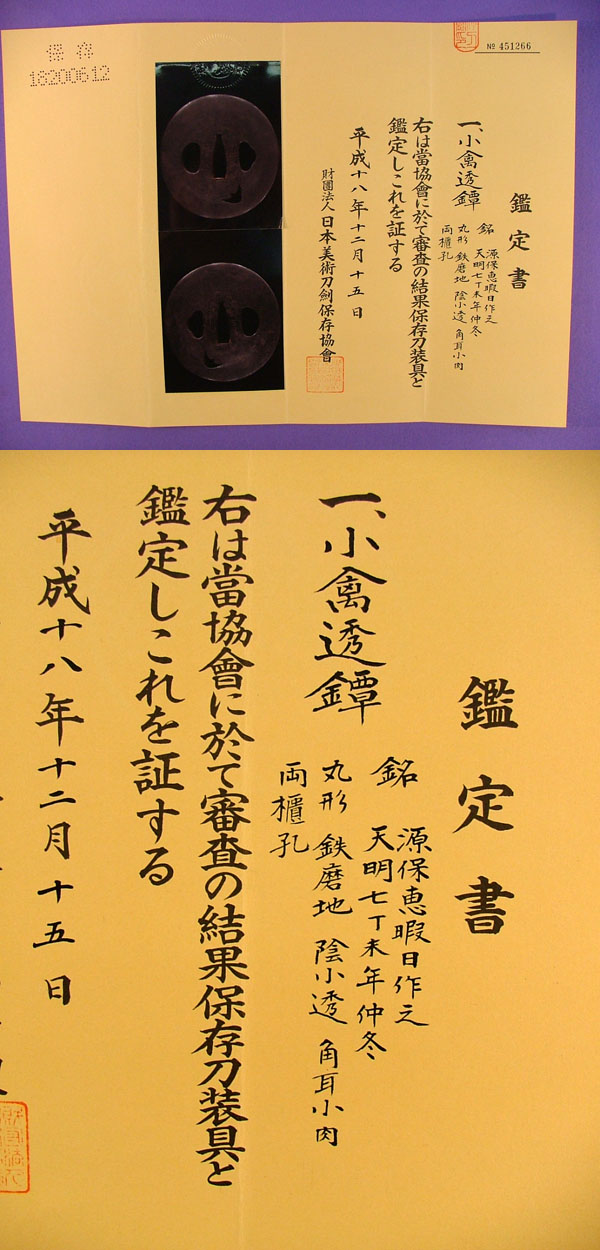 保存
18200612
№ 451266
鑑定書
一、小禽透鐔
銘 源保恵暇日作之
天明七丁未年仲冬
丸形 鉄磨地 陰小透 角耳小肉
両櫃孔
右は當協會に於て審査の結果保存刀装具と
鑑定しこれを証する
平成十八年十二月十五日
財團法人日本美術刀劍保存協會
鑑定書
一、小禽透鐔
銘 源保恵暇日作之
天明七丁未年仲冬
丸形 鉄磨地 陰小透 角耳小肉
両櫃孔
右は當協會に於て審査の結果保存刀装具と
鑑定しこれを証する
平成十八年十二月十五日